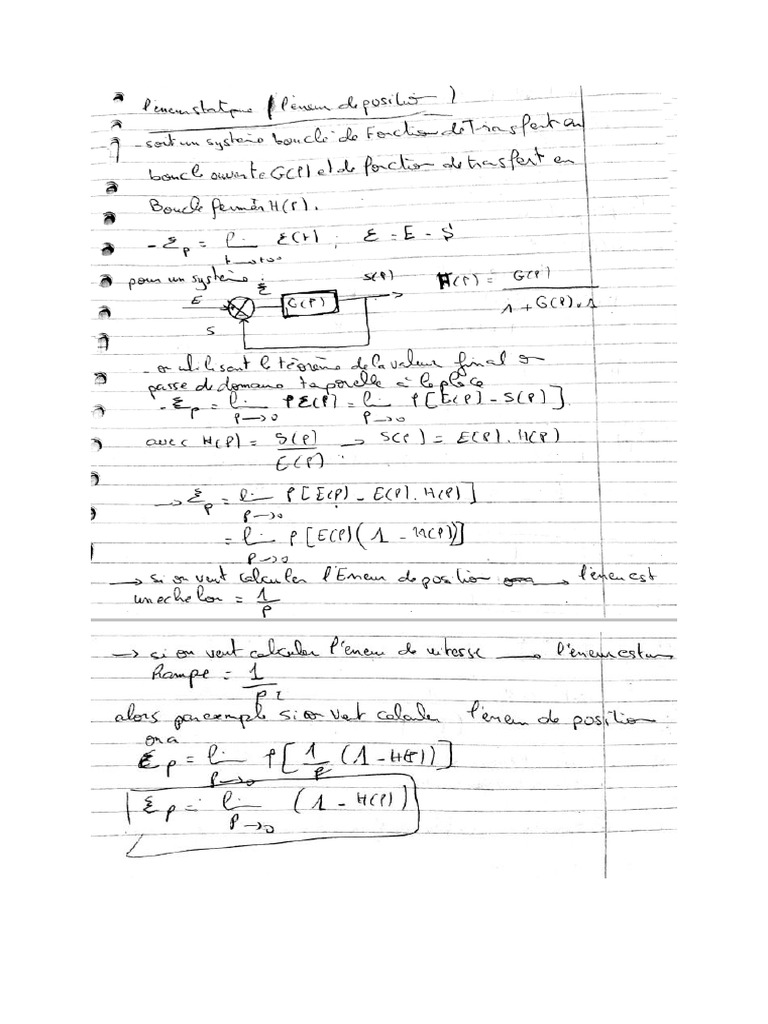 l'erreur statique (l'erreur de position)
- soit un système bouclé de Fonction de Transfert en
boucle ouverte G(P) et de fonction de transfert en
Boucle fermée H(P).
- Ɛp = lim Ɛ(t) ; Ɛ = E - S
t→+∞
pour un système :
E Ɛ G(P) S(P) H(P) = G(P) / (1 + G(P).1)
S
- on utilisant le téorème de la valeur final on
passe de domaine temporelle à la place
- Ɛp = lim PƐ(P) = lim P[E(P) - S(P)]
P→0 P→0
avec H(P) = S(P) / E(P) → S(P) = E(P).H(P)
→ Ɛp = lim P[E(P) - E(P).H(P)]
P→0
= lim P[E(P)(1 - H(P))]
P→0
→ si on veut calculer l'Erreur de position → l'erreur est
une echelon = 1/P
→ si on veut calculer l'erreur de vitesse → l'erreur est un
Rampe = 1/P²
alors par exemple si on veut calculer l'erreur de position
on a
Ɛp = lim P[1/P (1 - H(P))]
P→0
Ɛp = lim (1 - H(P))
P→0